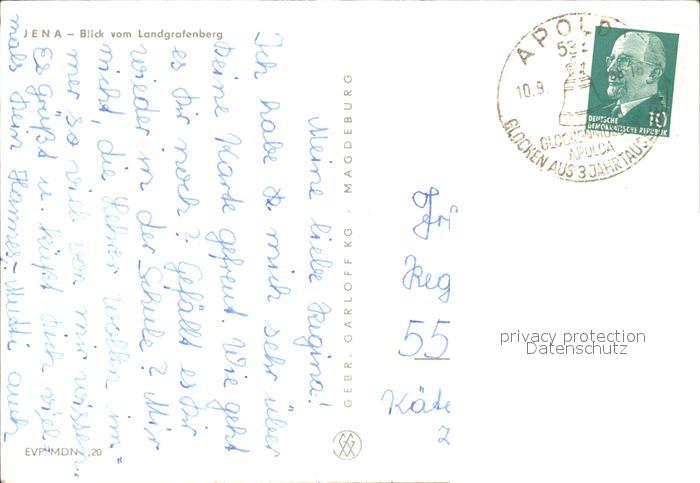 JENA – Blick vom Landgrafenberg
Meine liebe Regina!
Ich habe mich sehr über
Deine Karte gefreut. Wie geht
es Dir noch? Gefällt es Dir
wieder in der Schule? Mir
nicht, die Lehrer wollen im-
mer so viel von mir wissen.
Es grüßt u. küßt Dich viel-
mals Dein Hannes, Mutti auch
EVP MDN ,20
GEBR. GARLOFF KG · MAGDEBURG
APOLDA
532
10.9.
GLOCKENMUS
APOLDA
GLOCKEN AUS 3 JAHRTAUS
DEUTSCHE
DEMOKRATISCHE REPUBLIK
10
Reg
55
Käte
privacy protection
Datenschutz